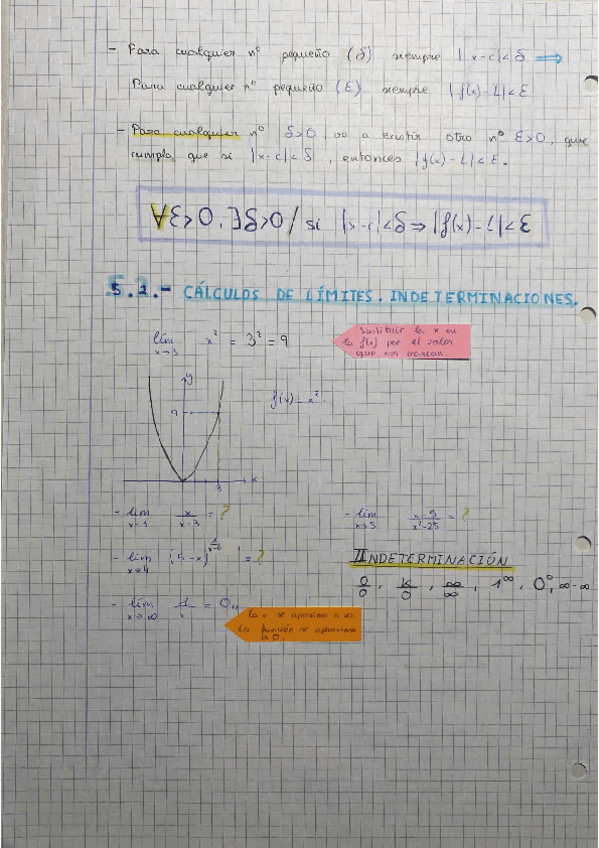 - Para cualquier nº pequeño (δ) siempre |x-c|<δ ⟹
Para cualquier nº pequeño (ε) siempre |f(x)-L|<ε
- Para cualquier nº δ>0, va a existir otro nº ε>0, que
cumpla que si |x-c|<δ, entonces |f(x)-L|<ε.
∀ε>0, ∃δ>0/ si |x-c|<δ ⇒ |f(x)-L|<ε
5.2.- CÁLCULOS DE LÍMITES. INDETERMINACIONES.
lím x→3 x² = 3² = 9
Sustituir la x en
la f(x) por el valor
que nos marcan.
y
9
f(x) = x²
3
x
- lím x/x-3 = ?
- lím x→5 x-5/x²-25 = ?
- lím x→4 (5-x) = ?
INDETERMINACIÓN
0/0, k/0, ∞/∞, 1^∞, 0^0, ∞-∞
- lím x→∞ 1/x = 0
La x se aproxima a ∞.
La función se aproxima
a 0.